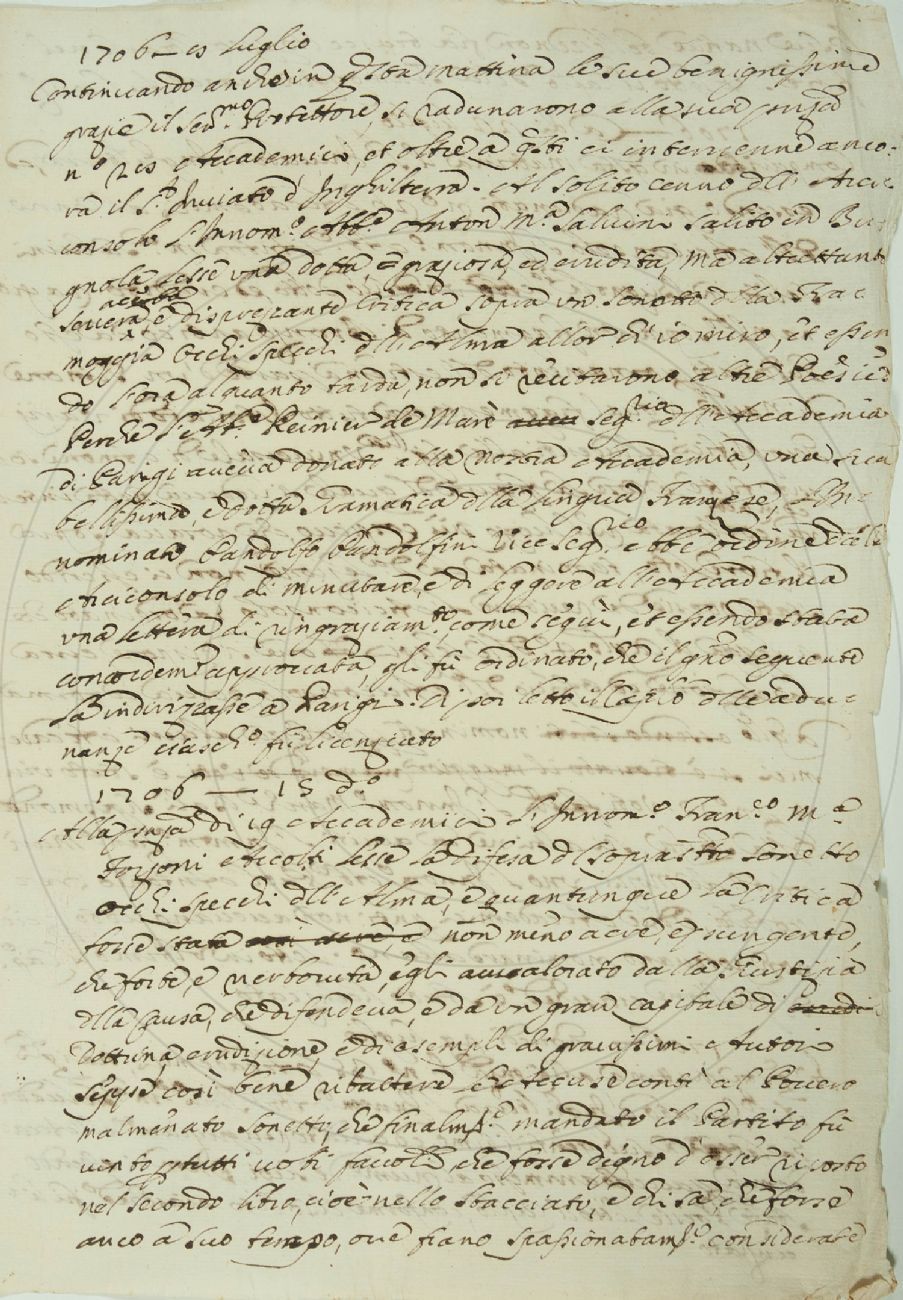 1706 — Luglio
Continuando anche in q.sta mattina le sue benignissime
grazie il Ser.mo Protettore, si radunarono alla sua pñza
n.o Accademici, et oltre a q.sti ci intervenne anco-
ra il S.r Inviato d'Inghilterra. Al solito cenno dell' Arci-
consolo l'Innom.o Abb.e Anton M.a Salvini salito in Bu-
gnola lesse una dotta, e graziosa, ed erudita, ma altrettanto
acerba
severa, e disprezzante Critica sopra un sonetto della Fra-
moggia Occhi specchi dell'Alma allor ch'io miro, et essen
do l'ora alquanto tarda, non si recitarono altre Poesie.
Perche l'Ab.e Reinier de Marè seg.rio dell'Accademia
di Parigi aveva donato alla nostra Accademia, una sua
bellissima, e dotta Gramatica della lingua Franzese, l'In-
nominato Pandolfo Pandolfini Vice Seg.rio ebbe ordine dall'
Arciconsolo di minutare, e di leggere all'Accademia
una lettera di ringraziam.to come seguì, et essendo stata
concordem.e approvata, gli fù ordinato, che il gño seguente
la indirizzasse a Parigi. Di poi letto il Cap.lo delle adu-
nanze ciasch.o fù licenziato
1706 — 15 d.o
Alla pñza di 19 Accademici l'Innom.o Fran.co M.a
Forzoni Accolti lesse la difesa del soprad.tto sonetto
occhi specchi dell'Alma, e quantunque la Critica
fosse stata non meno acre, e pungente,
che forte, e nerboruta, egli avvalorato dalla Giustizia
della Causa, che difendeva, e da un gran capitale di
Dottrina, erudizione, e di esempli di gravissimi Autori
seppe così bene ribattere le accuse conti al Povero
malmenato sonetto, che finalm.te mandato il Partito fù
vinto p tutti voti favoli che fosse degno d'esser riposto
nel secondo libro, cioè nello stacciato, e chi sà, che forse
anco a suo tempo, ove siano spassionatam.te considerate